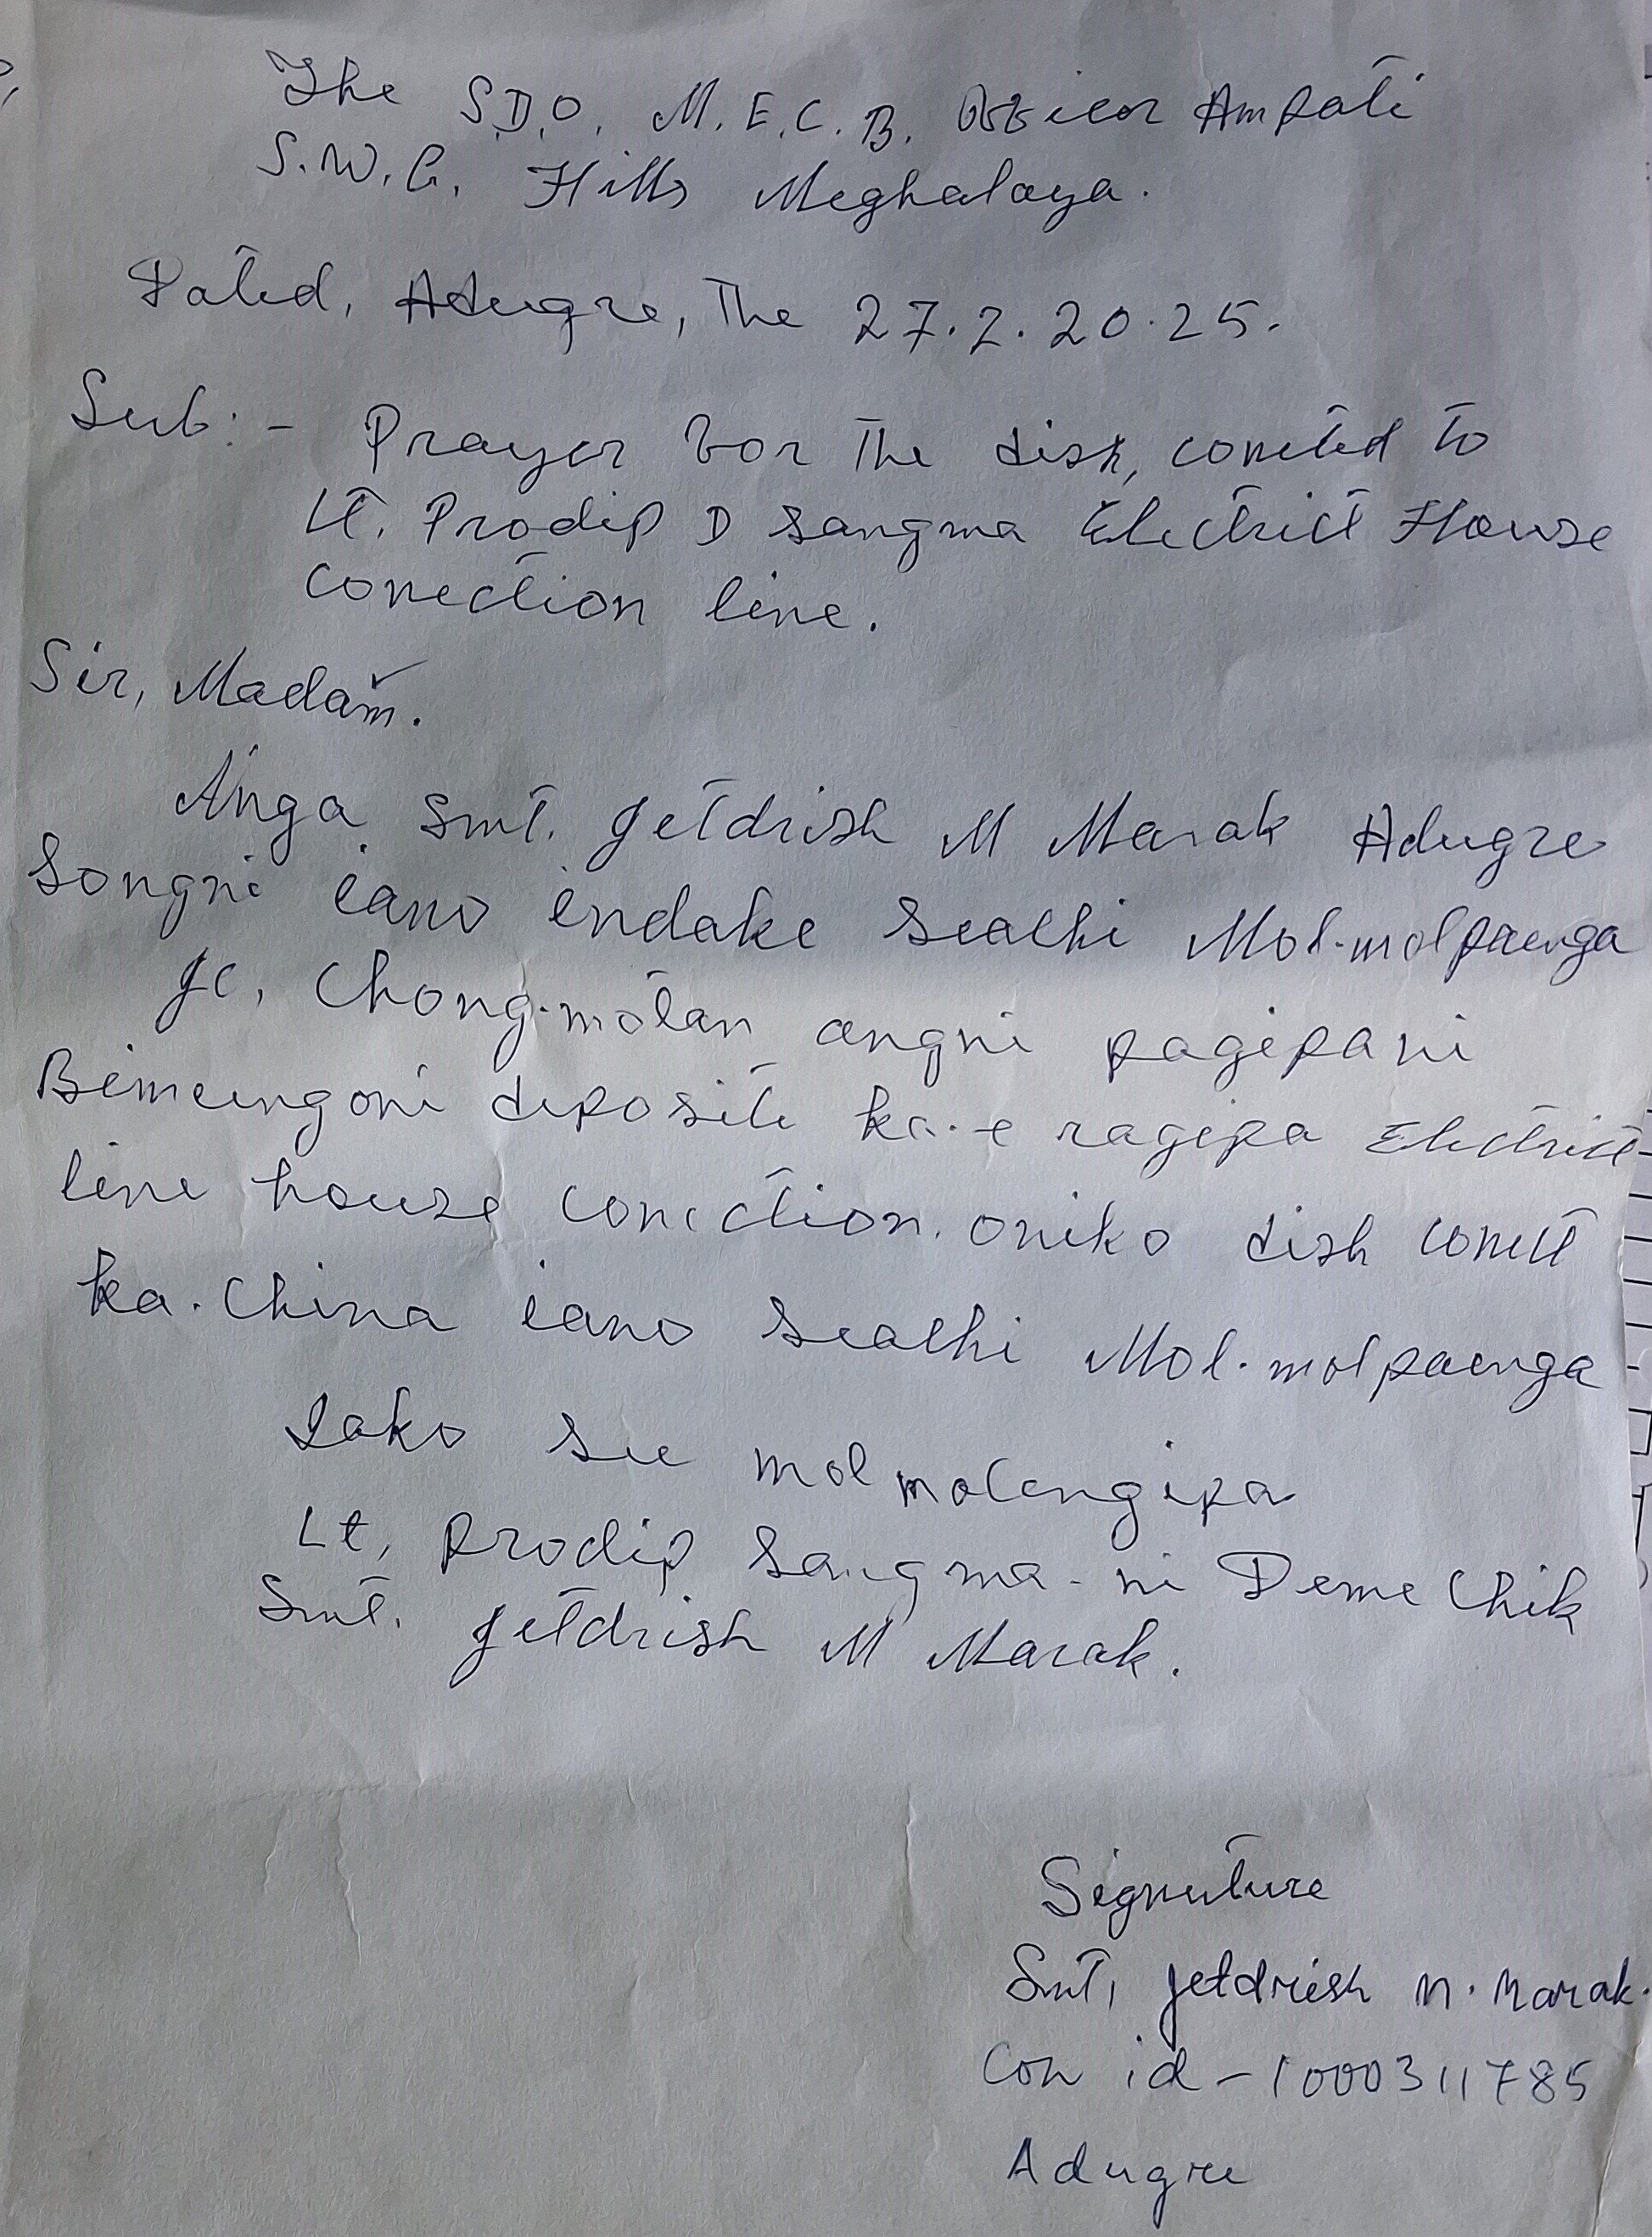 The S.D.O. M.E.C.B. Officer Ampati
S.W.G. Hills Meghalaya.
Dated, Adugre, The 27.2.2025.
Sub:- Prayer for The disk, conected to
Lt. Prodip D Sangma Electrict House
conection line.
Sir, Madam.
Anga Smt. Jetdrish M Marak Adugre
Songni iano indake sealhi Mol-molpaenga
Je, Chong.motan angni pagipani
Bimungoni deposite ka.e ragipa Electrict
line house conection. oniko dish conect
ka.china iano sealhi Mol.molpaenga
Iako see mol molengipa
Lt, Prodip Sangma-ni Deme Chik
Smt. Jetdrish M Marak.
Signuture
Smt, Jetdrish M. Marak.
Con id - 1000311785
Adugre